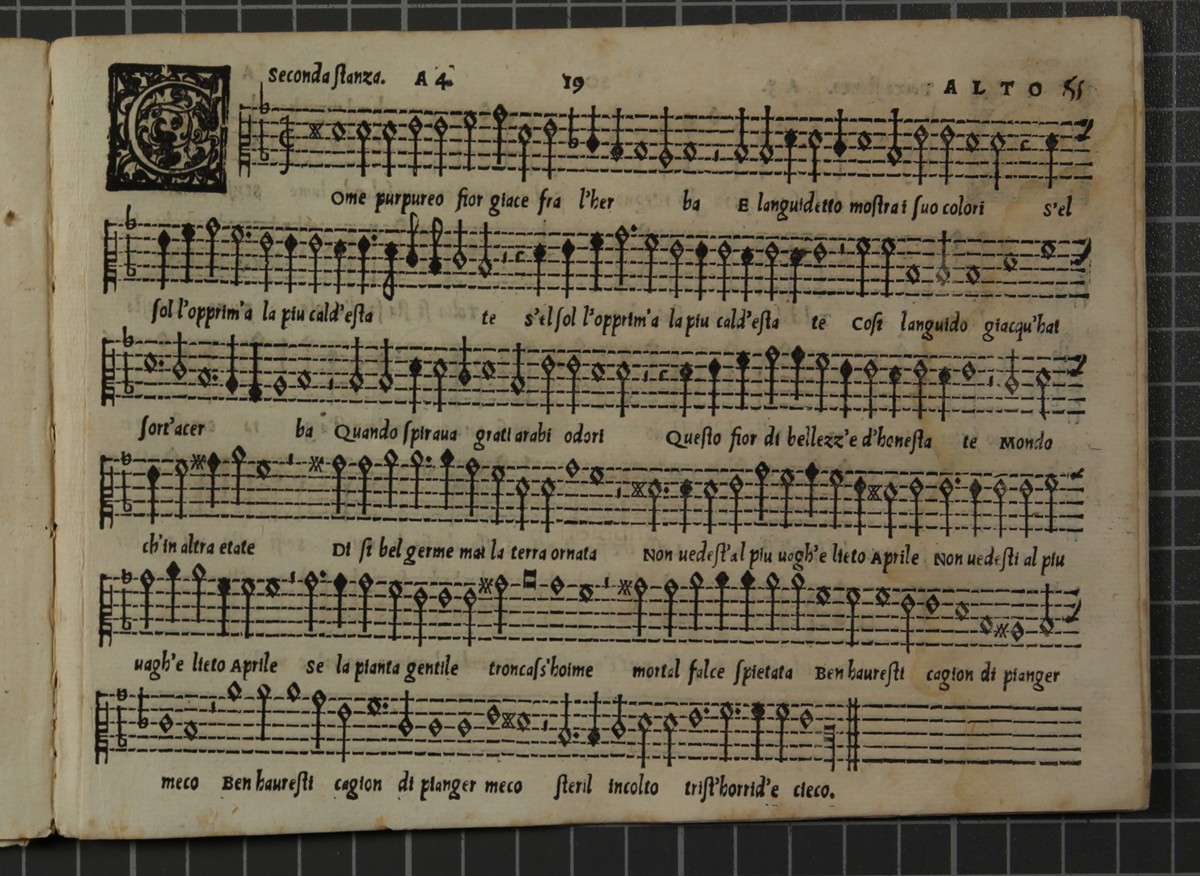 Seconda ſtanza. A 4. 19 ALTO
COme purpureo fior giace fra l'her ba E languidetto moſtra i ſuo colori s'el
ſol l'opprim'a la piu cald'eſta te s'el ſol l'opprim'a la piu cald'eſta te Coſi languido giacqu'hai
ſort'acer ba Quando ſpiraua grati arabi odori Queſto fior di bellezz'e d'honeſta te Mondo
ch'in altra etate Di ſi bel germe mai la terra ornata Non uedeſt'al piu uagh'e lieto Aprile Non uedeſti al piu
uagh'e lieto Aprile Se la pianta gentile troncaſs'hoime mortal falce ſpietata Ben haureſti cagion di pianger
meco Ben haureſti cagion di pianger meco ſteril incolto triſt'horrid'e cieco.